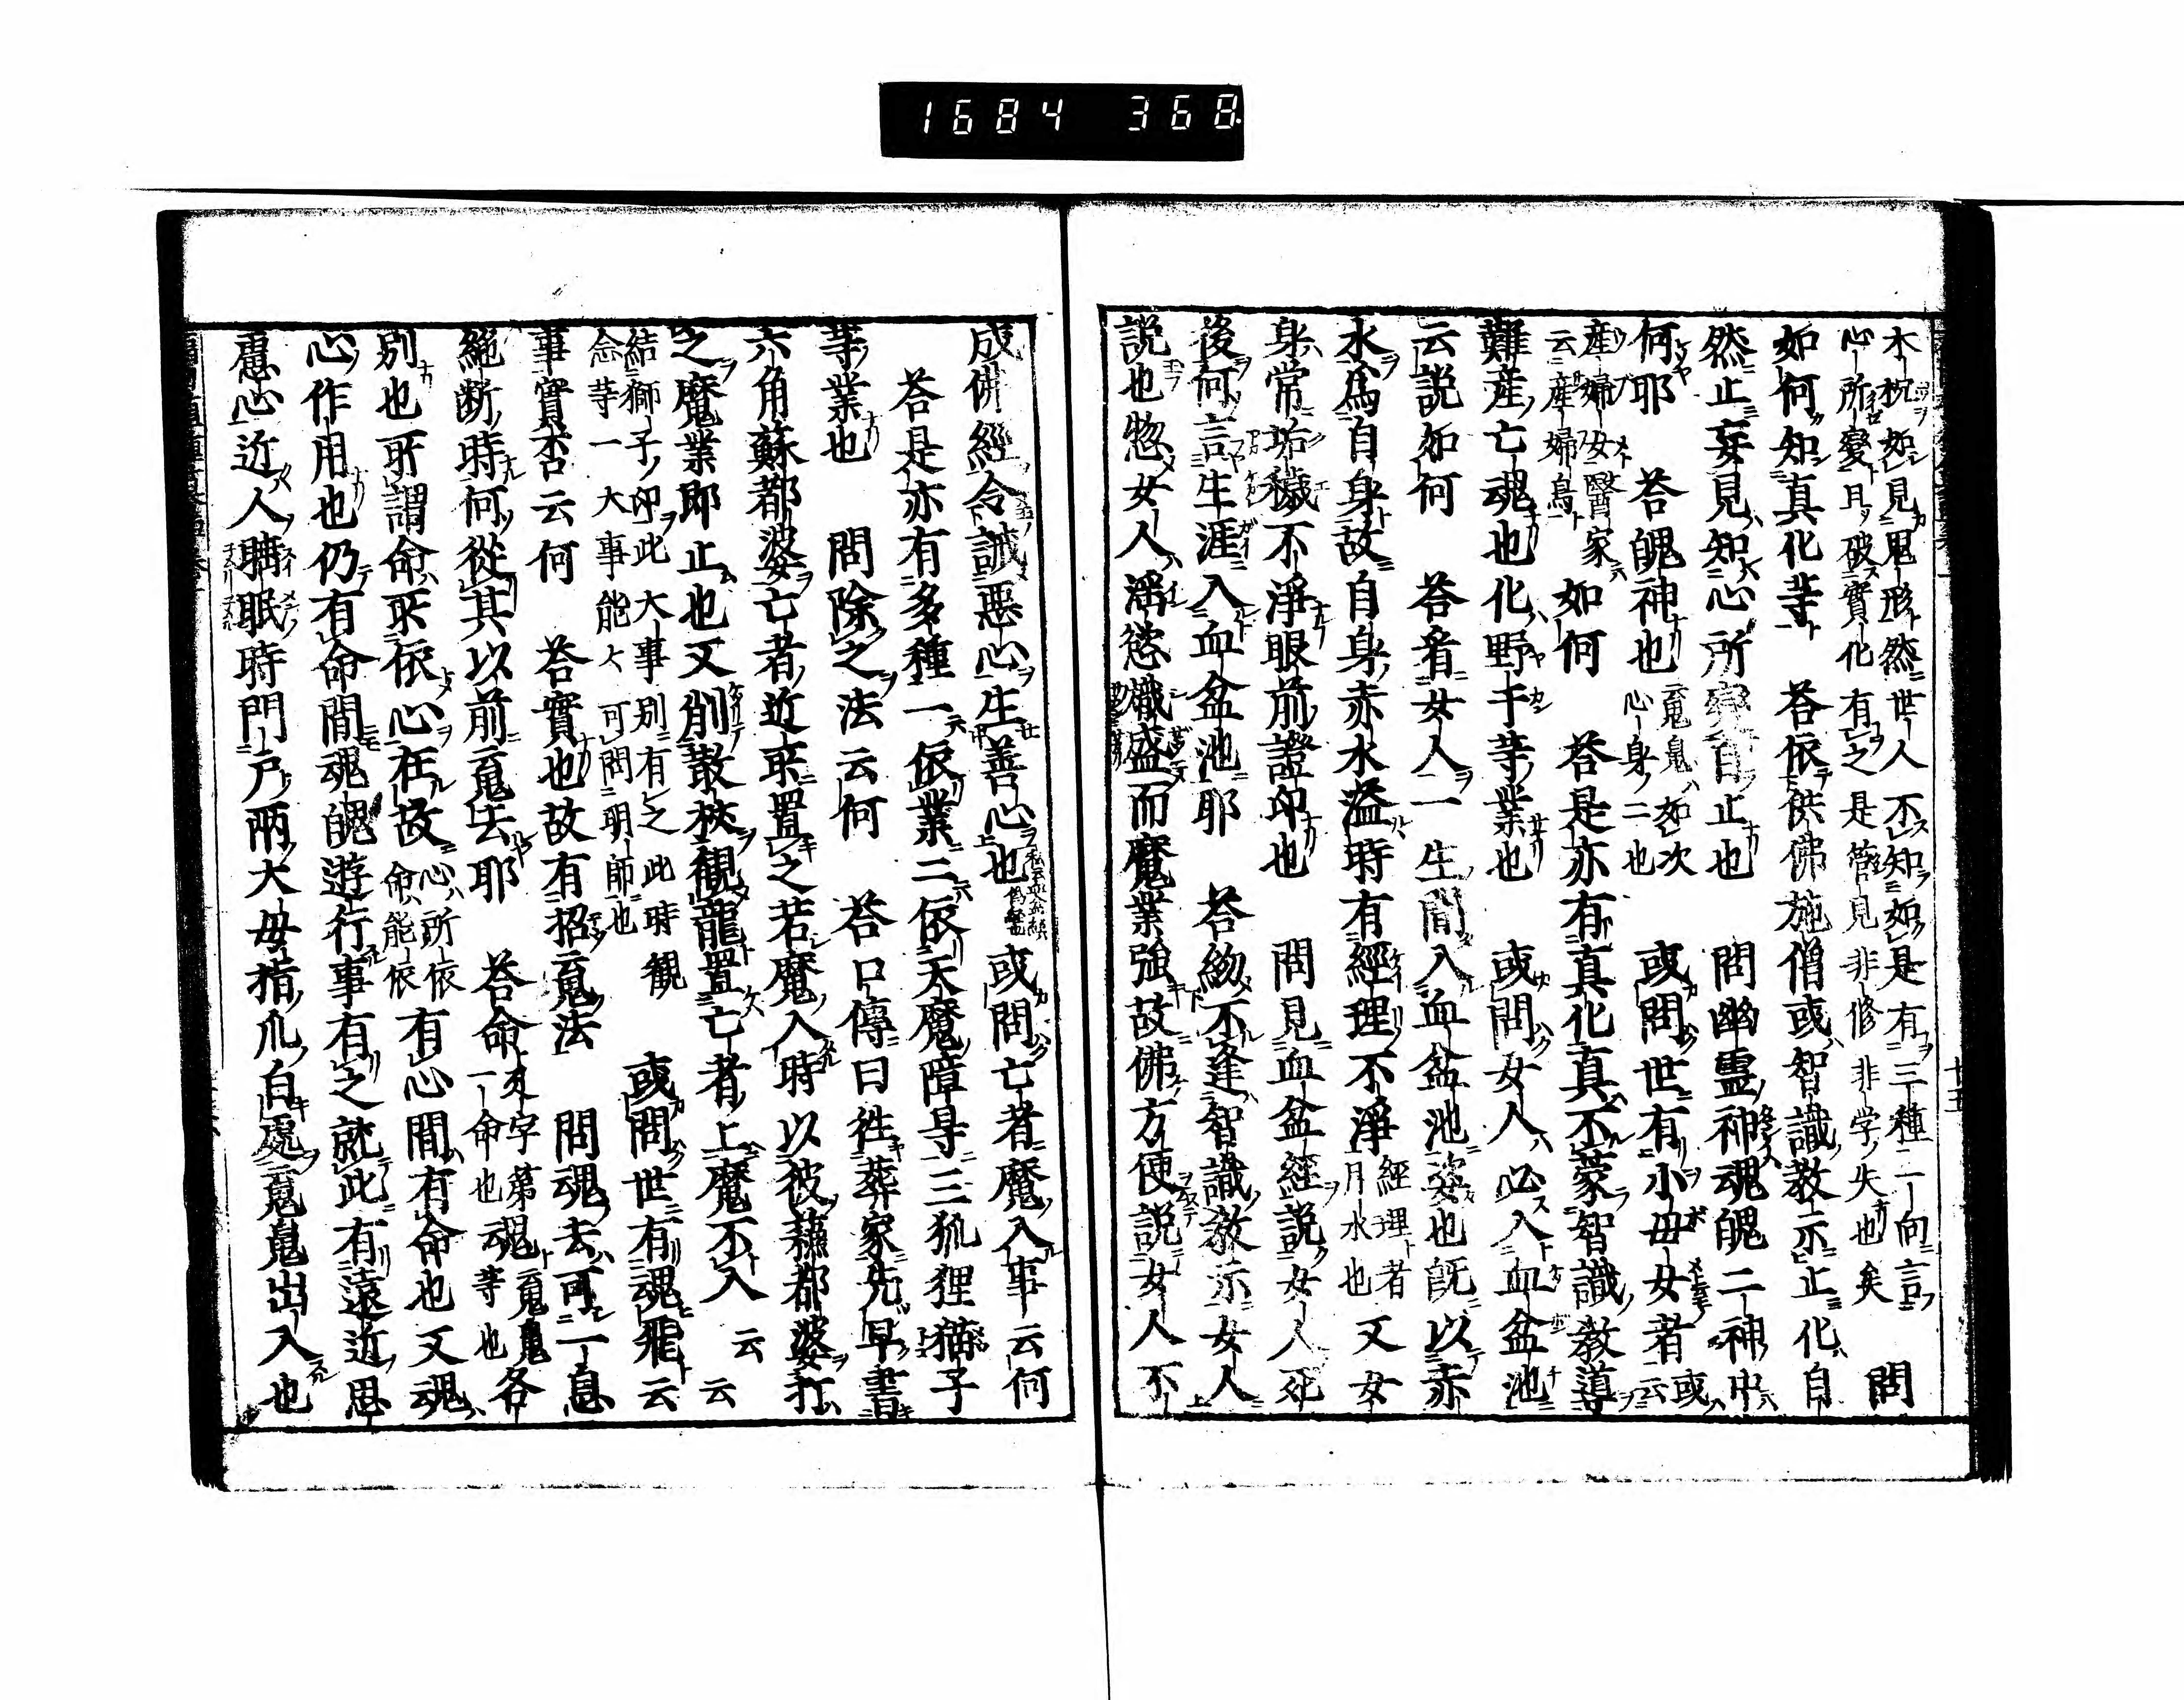 1684 368
木杭如見鬼形然世人不知如是有三種二向言
心所變且破實化有之是管見非修非学失也矣
問
如何知真化等 荅依供佛施僧或智識教示止化自
然止妄見知心所變自止也 問幽靈神魂魄二神中
何耶 荅魄神也
䰟鬼如次
心身二也
或問世有小母女者
或
云
産婦女醫家
云産婦鳥
如何 荅是亦有真化真不蒙智識教導
難産亡魂也化野干等業也 或問女人必入血盆池
云説如何 荅者女人一生間入血盆池姿也既以赤
水為自身故自身赤水溢時有經理不淨
經理者
月水也
又女
身常垢穢不淨眼前證印也 問見血盆經説女人死
後何言生涯入血盆池耶 荅不逢智識教示女人
説也惣女人婬慾熾盛而魔業強故佛方便説女人不
廿五
成佛經令誡惡心生善心也
或問亡者魔入事云何
荅是亦有多種一依業二依天魔障㝵三狐狸猫子
等業也 問除之法云何 荅口傳曰徃葬家先早書
六角蘇都婆亡者近來置之若魔入時以彼蘓都婆打
之魔業即止也又削散杖觀龍置亡者上魔不入云云
結獅子印此大事別有之此時觀
念等一大事能々可問明師也
或問世有魂飛云
事實否云何 荅實也故有招䰟法 問魂去可一息
絶断時何從其以前䰟去耶 荅命
來字第
一命也
魂
䰟鬼
等也
各
別也所謂命所依心在故
心所依
命能依
有心間有命也又魂
心作用也仍有命間魂魄遊行事有之就此有遠近思
慮心近人睡眠時門戸兩大母指爪白處䰟鬼出入也